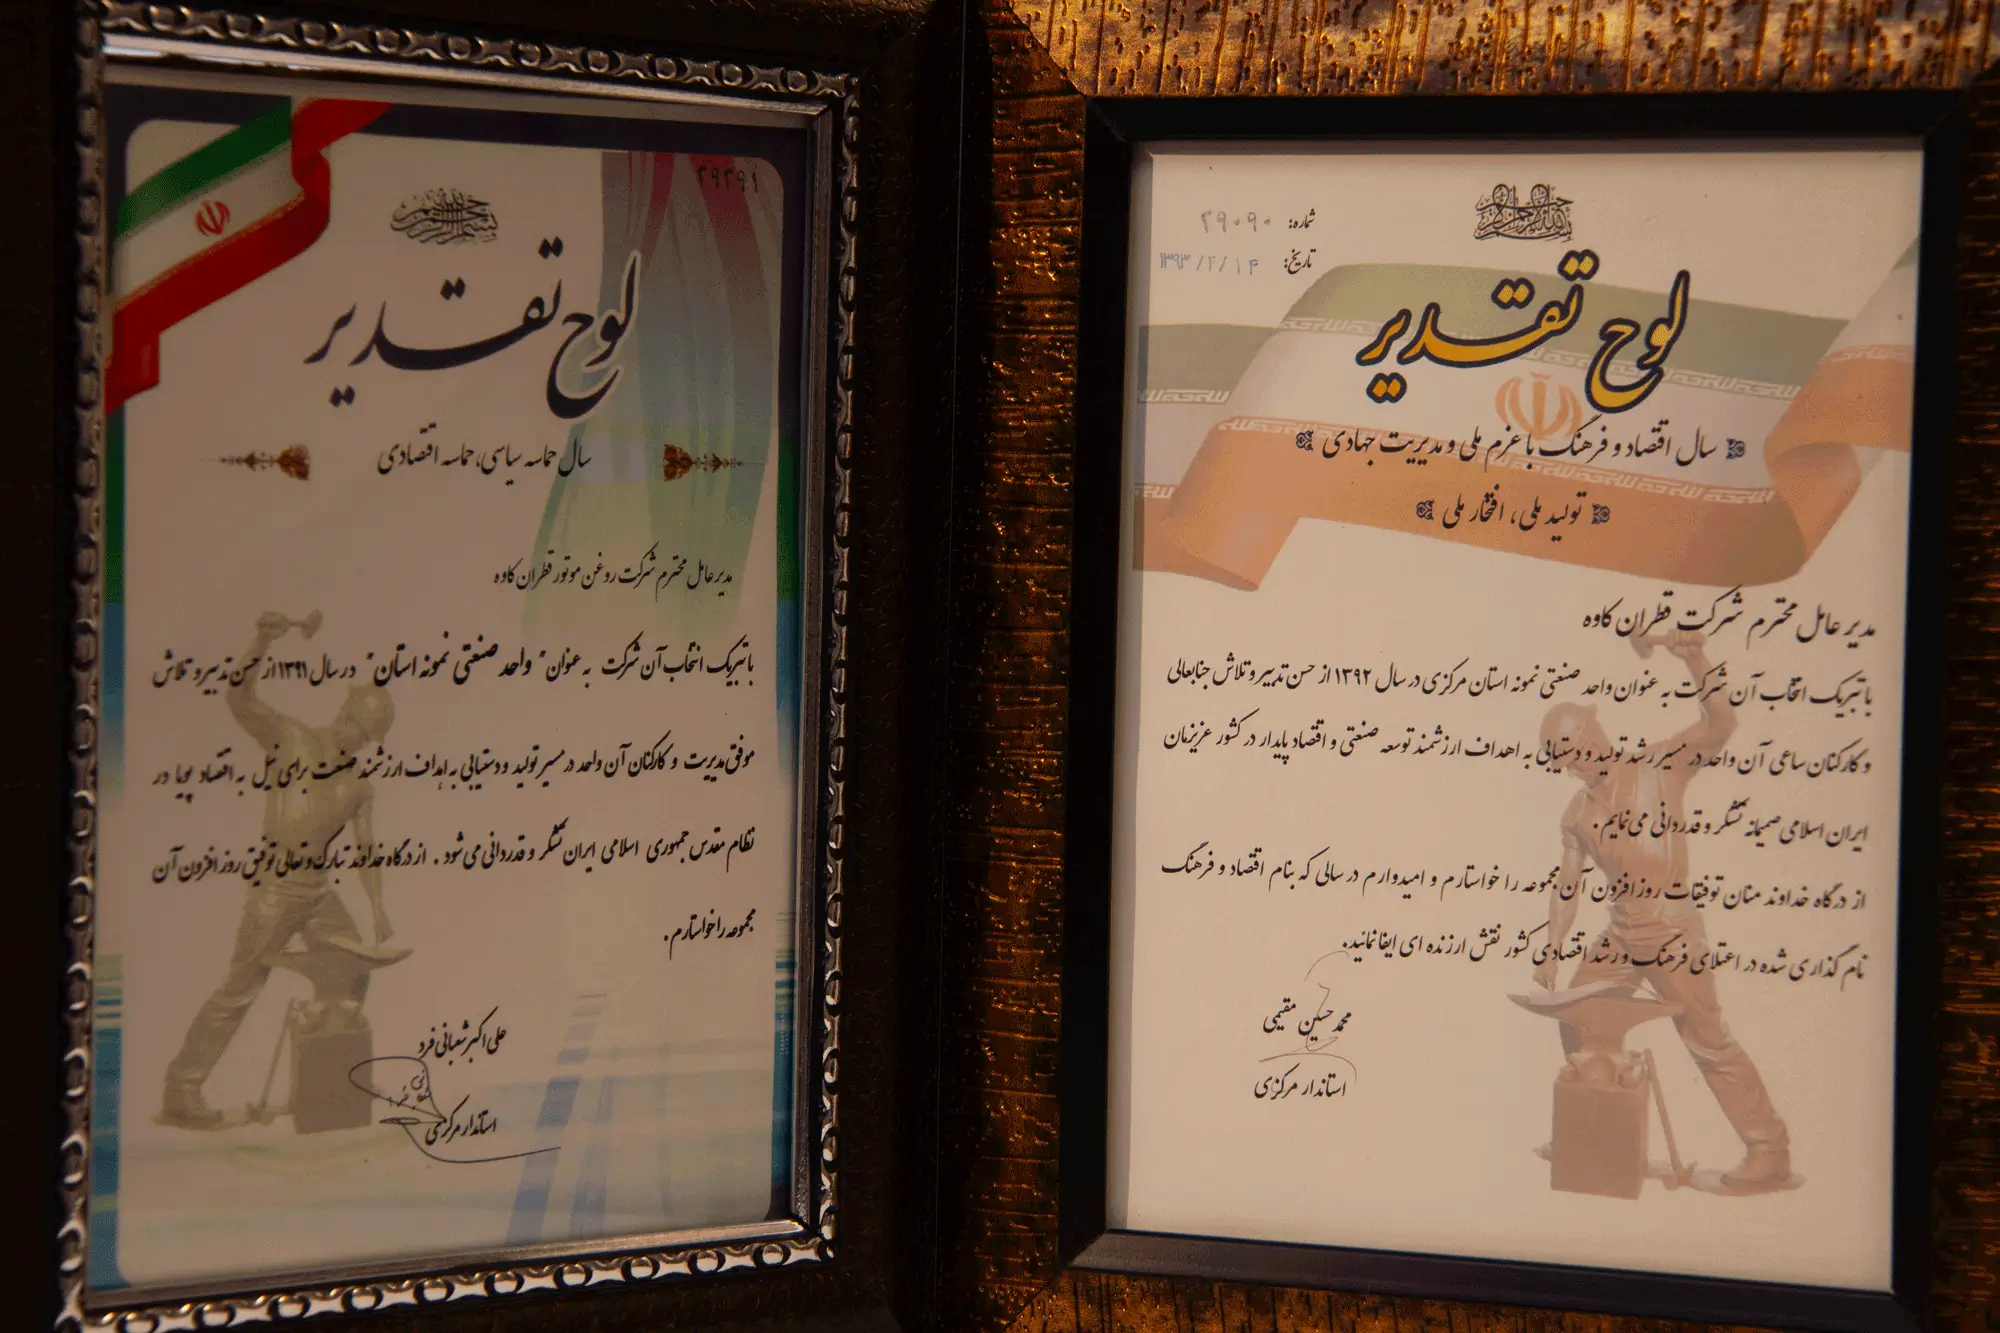 ۲۹۲۹۱
بسم الله الرحمن الرحیم
لوح تقدیر
سال حماسه سیاسی، حماسه اقتصادی
مدیر عامل محترم شرکت روغن موتور قطران کاوه
با تبریک انتخاب آن شرکت به عنوان " واحد صنعتی نمونه استان " در سال ۱۳۹۱ از حسن تدبیر و تلاش
موفق مدیریت و کارکنان آن واحد در مسیر تولید و دستیابی به اهداف ارزشمند صنعت برای نیل به اقتصاد پویا در
نظام مقدس جمهوری اسلامی ایران تشکر و قدردانی می شود . از درگاه خداوند تبارک و تعالی توفیق روز افزون آن
مجموعه را خواستارم .
علی اکبر شعبانی فرد
استاندار مرکزی
بسم الله الرحمن الرحیم
شماره: ۲۹۰۹۰
تاریخ: ۱۳۹۳/۴/۱۴
لوح تقدیر
سال اقتصاد و فرهنگ با عزم ملی و مدیریت جهادی
تولید ملی ، افتخار ملی
مدیر عامل محترم شرکت قطران کاوه
با تبریک انتخاب آن شرکت به عنوان واحد صنعتی نمونه استان مرکزی در سال ۱۳۹۲ از حسن تدبیر و تلاش جنابعالی
و کارکنان ساعی آن واحد در مسیر رشد تولید و دستیابی به اهداف ارزشمند توسعه صنعتی و اقتصاد پایدار در کشور عزیزمان
ایران اسلامی صمیمانه تشکر و قدردانی می نمایم .
از درگاه خداوند منان توفیقات روز افزون آن مجموعه را خواستارم و امیدوارم در سالی که بنام اقتصاد و فرهنگ
نام گذاری شده در اعتلای فرهنگ و رشد اقتصادی کشور نقش ارزنده ای ایفا نمائید.
محمد حسین مقیمی
استاندار مرکزی